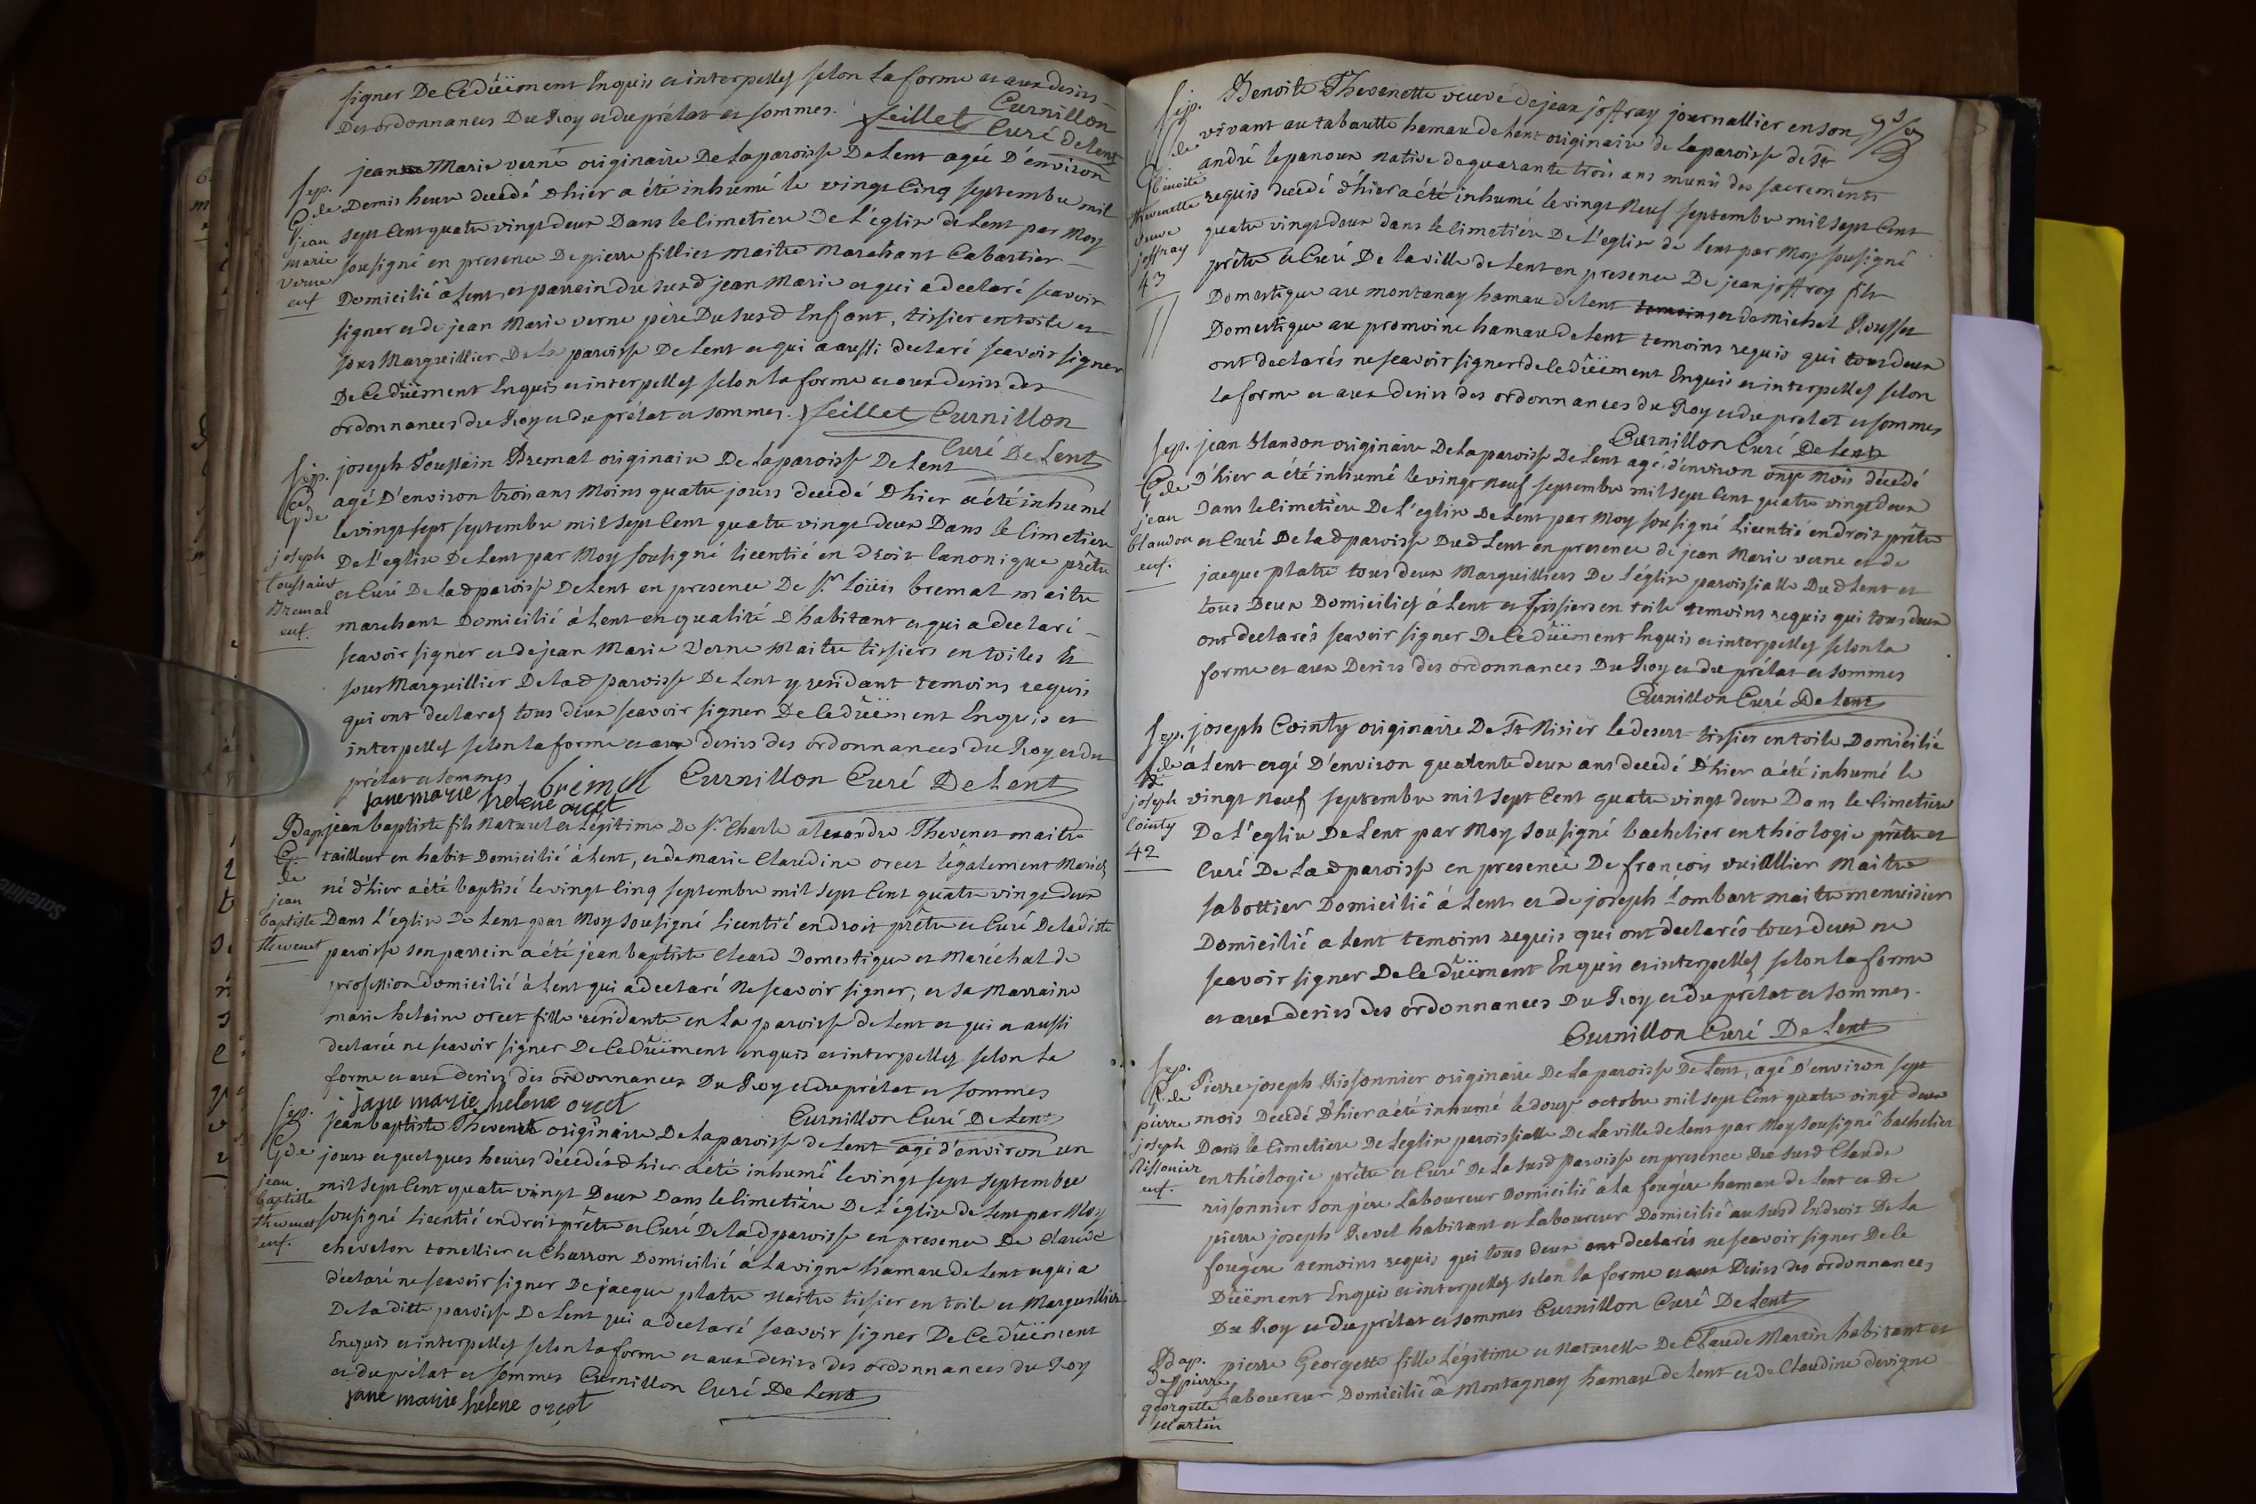 signer De Ce dûëment Enquis et interpellés selon la forme et aux desirs
Des ordonnances Du Roy et du prélat et sommes. feillet Curnillon
Curé de Lent
Sep.
G de
jean
marie
verne
enf
jean Marie verne originaire De la paroisse De Lent agée D'environ
Demis heure decedé d'hier a été inhumé le vingt Cinq septembre mil
sept Cent quatre vingt deux Dans le Cimetiere De L'eglise de Lent par Moy
sousigné en presence De pierre fillier maitre marchant Cabartier
Domicilié a Lent, et parrein du susd jean Marie et qui a declaré scavoir
signer et de jean Marie verne père Du susd Enfant, tissier en toile et
sous Marguillier De la paroisse De Lent et qui a aussi declaré scavoir signer
De Ce dûëment Enquis et interpellés selon la forme et aux desirs des
ordonnances du Roy et du prélat et sommes. feillet Curnillon
Curé De Lent
Sep.
G de
joseph
toussaint
Bremal
enf.
joseph Toussain Bremal originaire De la paroisse De Lent
agé D'environ trois ans Moins quatre jours decedé D'hier a été inhumé
le vingt sept septembre mil sept Cent quatre vingt deux Dans le Cimetiere
De L'eglise De Lent par Moy sousigné licentié en droit Canonique prêtre
et Curé De lad paroisse De Lent en presence De Sr Loüis bremal maitre
marchant Domicilié à Lent en qualité D'habitant et qui a declaré
scavoir signer et de jean Marie Verne Maitre tissiers en toiles Et
sous Marguillier De lad paroisse De Lent y residant temoins requis
qui ont declarés tous deux scavoir signer De Ce dûëment Enquis et
interpellés selon la forme et aux desirs des ordonnances du Roy et du
prélat et sommes bremal Curnillon Curé De Lent
jane marie helene orcet
Bap
G.
de
jean
baptiste
thevenet
jean baptiste fils Naturel et Légitime De Sr Charle alexandre Thevenet maitre
tailleur en habit Domicilié à Lent, et de Marie Claudine orcet légalement Mariés
né d'hier a été baptisé le vingt Cinq septembre mil sept Cent quatre vingt deux
Dans L'eglise De Lent par Moy sousigné Licentié en droit prêtre et Curé De ladite
paroisse son parrein a été jean baptiste Cleard Domestique et Maréchal de
profession domicilié à Lent qui a declaré Ne scavoir signer, et sa Marraine
marie helaine orcet fille residante en la paroisse de Lent et qui a aussi
declarée ne scavoir signer De Ce dûëment enquis et interpellés selon la
forme et aux desirs des ordonnances Du Roy et du prélat et sommes
jane marie helene orcet Curnillon Curé De Lent
Sep.
G de
jean
baptiste
thevenet
enf.
jean baptiste Thevenet originaire De la paroisse de Lent agé d'environ un
jours et quelques heures décédés d'hier a été inhumé le vingt sept septembre
mil sept Cent quatre vingt Deux Dans le Cimetière De L'église de Lent par Moy
sousigné Licentié en droit prêtre et Curé De lad paroisse en presence De Claude
chevelon tonellier et Charron Domicilié à La vigne hamau de Lent et qui a
déclaré ne scavoir signer De jacque platre Maitre tissier en toile et Marguillier
De la ditte paroisse De Lent qui a declaré scavoir signer De Ce dûëment
Enquis et interpellés selon la forme et aux desirs des ordonnances du Roy
et du prélat et sommes Curnillon Curé De Lent
jane marie helene orcet
Sep.
de
benoite
thevenette
veuve
joffray
43
Benoite Thevenette veuve de jean joffray journallier en son
vivant au tabarette hamau de Lent originaire de la paroisse de St
andré le panoux native de quarante trois ans munü des sacrements
requis decedé d'hier a été inhumé le vingt Neuf septembre mil sept Cent
quatre vingt deux dans le Cimetière De L'eglise de Lent par Moy sousigné
prêtre et Curé De la ville de Lent en presence De jean joffroy fils
Domestique au montanay hamau de Lent temoins et de michel Rousset
Domestique au promoine hamau de Lent temoins requis qui tous deux
ont declarés ne scavoir signer de Ce dûëment Enquis et interpellés selon
la forme et aux desirs des ordonnances du Roy et du prelat et sommes
Curnillon Curé De Lent
Sep.
G de
jean
blandon
enf.
jean blandon originaire De la paroisse De Lent agé d'environ onze Mois décedé
D'hier a été inhumé le vingt neuf septembre mil sept Cent quatre vingt deux
Dans le Cimetiere De L'eglise De Lent par Moy sousigné Licentié en droit prêtre
et Curé De lad paroisse Dud Lent en presence de jean Marie verne et de
jacque platre tous deux Marguilliers De l'église paroissialle Dud Lent et
tous Deux Domiciliés à Lent et Tissiers en toile temoins requis qui tous deux
ont declarés scavoir signer De Ce dûëment Enquis et interpellés selon la
forme et aux Desirs des ordonnances Du Roy et du prélat et sommes
Curnillon Curé De Lent
Sep.
de
joseph
Cointy
42
joseph Cointy originaire De St Nisier le desert tissier en toile Domicilié
à Lent agé D'environ quarente deux ans decedé D'hier a été inhumé le
vingt Neuf septembre mil sept Cent quatre vingt deux Dans le Cimetiere
De L'eglise De Lent par Moy sousigné bachelier en théologie prêtre et
Curé De Lad paroisse en presence De françois vuillier Maitre
sabottier Domicilié à Lent et de joseph Lombart maitre menuisier
Domicilié a Lent temoins requis qui ont declarés tous deux ne
scavoir signer De Ce dûëment Enquis et interpellés selon la forme
et aux desirs des ordonnances Du Roy et du prélat et sommes.
Curnillon Curé De Lent
Sep.
G de
pierre
joseph
Rissonier
enf.
Pierre joseph Rissonnier originaire De la paroisse De Lent, agé D'environ sept
mois Decedé D'hier a été inhumé le douze octobre mil sept Cent quatre vingt deux
Dans le Cimetiere De Leglise paroissialle De la ville de Lent par Moy sousigné bachelier
en théologie prêtre et Curé De la susd paroisse en presence Du susd Claude
rissonnier son père Laboureur Domicilié à la fougère hamau de Lent et De
pierre joseph Revel habitant et Laboureur Domicilié au susd Endroit De la
fougère temoins requis qui tous deux ont declarés ne scavoir signer De Ce
Dûëment Enquis et interpellés selon la forme et aux Desirs des ordonnances
Du Roy et du prélat et sommes Curnillon Curé De Lent
Bap.
de pierre
georgette
Martin
pierre Georgette fille Légitime et Naturelle De Claude Martin habitant et
Laboureur Domicilié à Montagnay hamau de Lent et de Claudine devigne